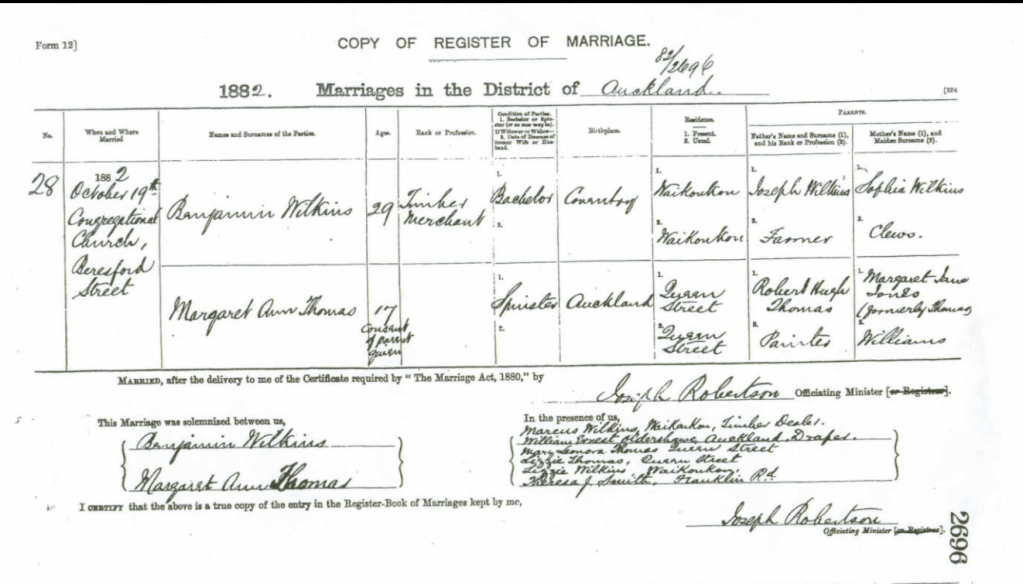 Form 12]
COPY OF REGISTER OF MARRIAGE.
82/2696
1882. Marriages in the District of Auckland
No.
When and Where Married
Names and Surnames of the Parties.
Ages.
Rank or Profession.
Condition of Parties.
1. Bachelor or Spinster (or as case may be).
If Widower or Widow—
2. Date of Decease of former Wife or Husband.
Birthplace.
Residence.
1. Present.
2. Usual.
PARENTS.
Father's Name and Surname (1), and his Rank or Profession (2).
Mother's Name (1), and Maiden Surname (2).
28
1882
October 19th
Congregational
Church,
Beresford
Street
Benjamin Wilkins
29
Timber
Merchant
1.
Bachelor
2.
Coventry
1.
Waikoukou
2.
Waikoukou
1.
Joseph Wilkins
2.
Farmer
1.
Sophia Wilkins
2.
Clews.
Margaret Ann Thomas
17
Consent
of parent
given
1.
Spinster
2.
Auckland
1.
Queen
Street
2.
Queen
Street
1.
Robert Hugh
Thomas
2.
Painter
1.
Margaret Jane
Jones
(formerly Thomas)
2.
Williams
MARRIED, after the delivery to me of the Certificate required by "The Marriage Act, 1880," by
Joseph Robertson Officiating Minister [or Registrar].
This Marriage was solemnized between us,
Benjamin Wilkins
Margaret Ann Thomas
In the presence of us,
Marcus Wilkins, Waikoukou, Timber Dealer.
William Ernest Oldershaw, Auckland, Draper.
Mary Lenora Thomas Queen Street
Lizzie Thomas, Queen Street
Lizzie Wilkins Waikoukou.
Theresa J Smith, Franklin Rd.
I CERTIFY that the above is a true copy of the entry in the Register-Book of Marriages kept by me,
Joseph Robertson
Officiating Minister [or Registrar].
2696